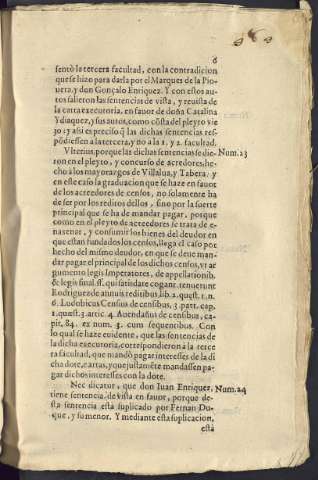 6
sentò la tercera facultad, con la contradicion
que se hizo para darla por el Marques de la Pio-
uera, y don Gonçalo Enriquez. Y con estos au-
tos salieron las sentencias de vista, y reuista de
la carta executoria, en fauor de doña Catalina
Ydiaquez, y sus autos, como cōsta del pleyto vie
jo: y assi es preciso q̃ las dichas sentencias res-
pōdiessen a la tercera, y no a la 1. y 2. facultad.
Vlterius, porque las dichas sentencias se die-
Num. 23
ron en el pleyto, y concurso de acredores, he-
cho à los mayorazgos de Villalua, y Tabera: y
en este caso la graduacion que se haze en fauor
de los acreedores de censos, no solamente ha
de ser por los reditos dellos, sino por la suerte
principal que se ha de mandar pagar, porque
como en el pleyto de acreedores se trata de e-
nagenar, y consumir los bienes del deudor en
que estan fundados los censos, llega el caso por
hecho del mismo deudor, en que se deue man-
dar pagar el principal de los dichos censos, vt ar-
gumento legis Imperatores, de appellationib.
& legis final. ff. qui satisdare cogant. tenuerunt
Rodriguez de annuis reditibus lib. 2. quæst. 1. n.
6. Lodobicus Census de censibus, 3. part. cap.
1. quæst. 3. artic. 4. Auendañus de censibus, ca-
pit. 84. ex num. 3. cum sequentibus. Con
lo qual se haze euidente, que las sentencias de
la dicha executoria, correspondieron à la terce
ra facultad, que mandò pagar intereses de la di
cha dote, e arras, y que justamēte mandassen pa-
gar dichos intereses con la dote.
Nec dicatur, que don Iuan Enriquez,
Num. 24
tiene sentencia de vista en fauor, porque de-
sta sentencia està suplicado por Fernan Du-
que, y su menor. Y mediante esta suplicacion,
està